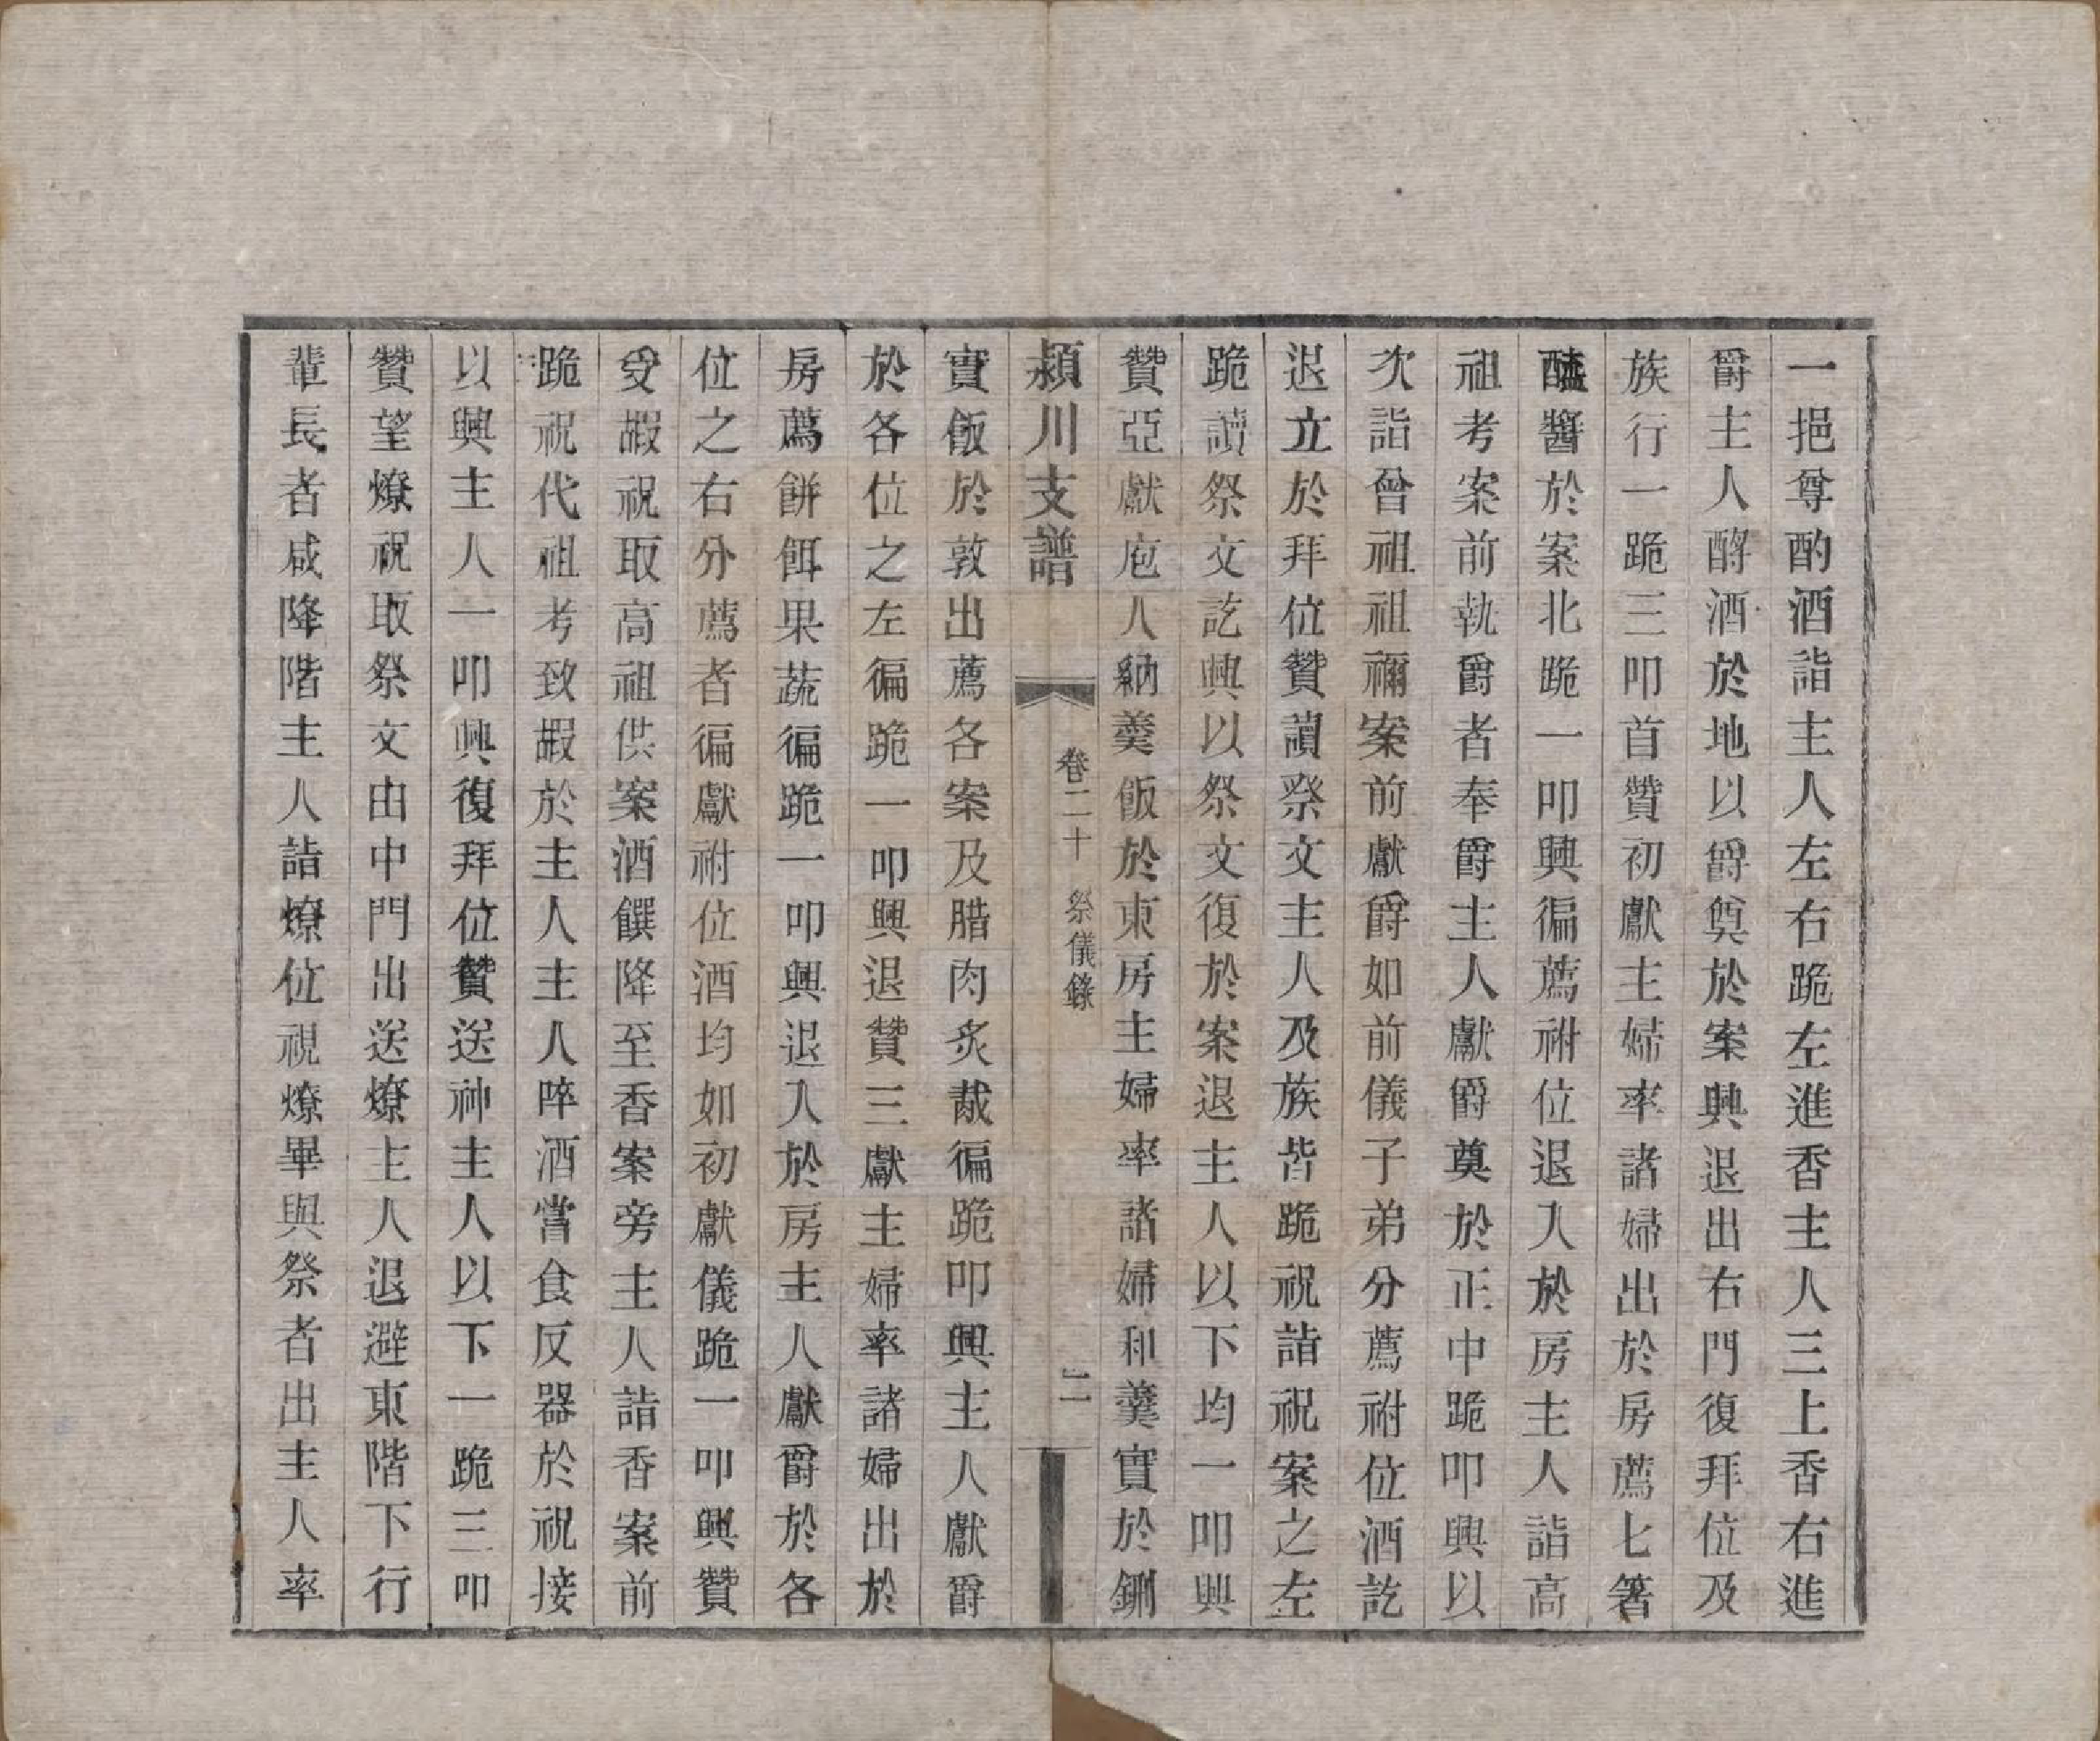 一挹尊酌酒詣主人左右跪左進香主人三上香右進
爵主人酹酒於地以爵奠於案興退出右門復拜位及
族行一跪三叩首贊初獻主婦率諸婦出於房薦匕箸
醯醬於案北跪一叩興徧薦祔位退入於房主人詣高
祖考案前執爵者奉爵主人獻爵奠於正中跪叩興以
次詣曾祖祖禰案前獻爵如前儀子弟分薦祔位酒訖
退立於拜位贊讀祭文主人及族皆跪祝詣祝案之左
跪讀祭文訖興以祭文復於案退主人以下均一叩興
贊亞獻庖人納羹飯於東房主婦率諸婦和羹實於鉶
潁川支譜
卷二十
祭儀錄
二
實飯於敦出薦各案及腊肉炙胾徧跪叩興主人獻爵
於各位之左徧跪一叩興退贊三獻主婦率諸婦出於
房薦餅餌果蔬徧跪一叩興退入於房主人獻爵於各
位之右分薦者徧獻祔位酒均如初獻儀跪一叩興贊
受嘏祝取高祖供案酒饌降至香案旁主人詣香案前
跪祝代祖考致嘏於主人主人啐酒嘗食反器於祝接
以興主人一叩興復拜位贊送神主人以下一跪三叩
贊望燎祝取祭文由中門出送燎主人退避東階下行
輩長者咸降階主人詣燎位視燎畢與祭者出主人率